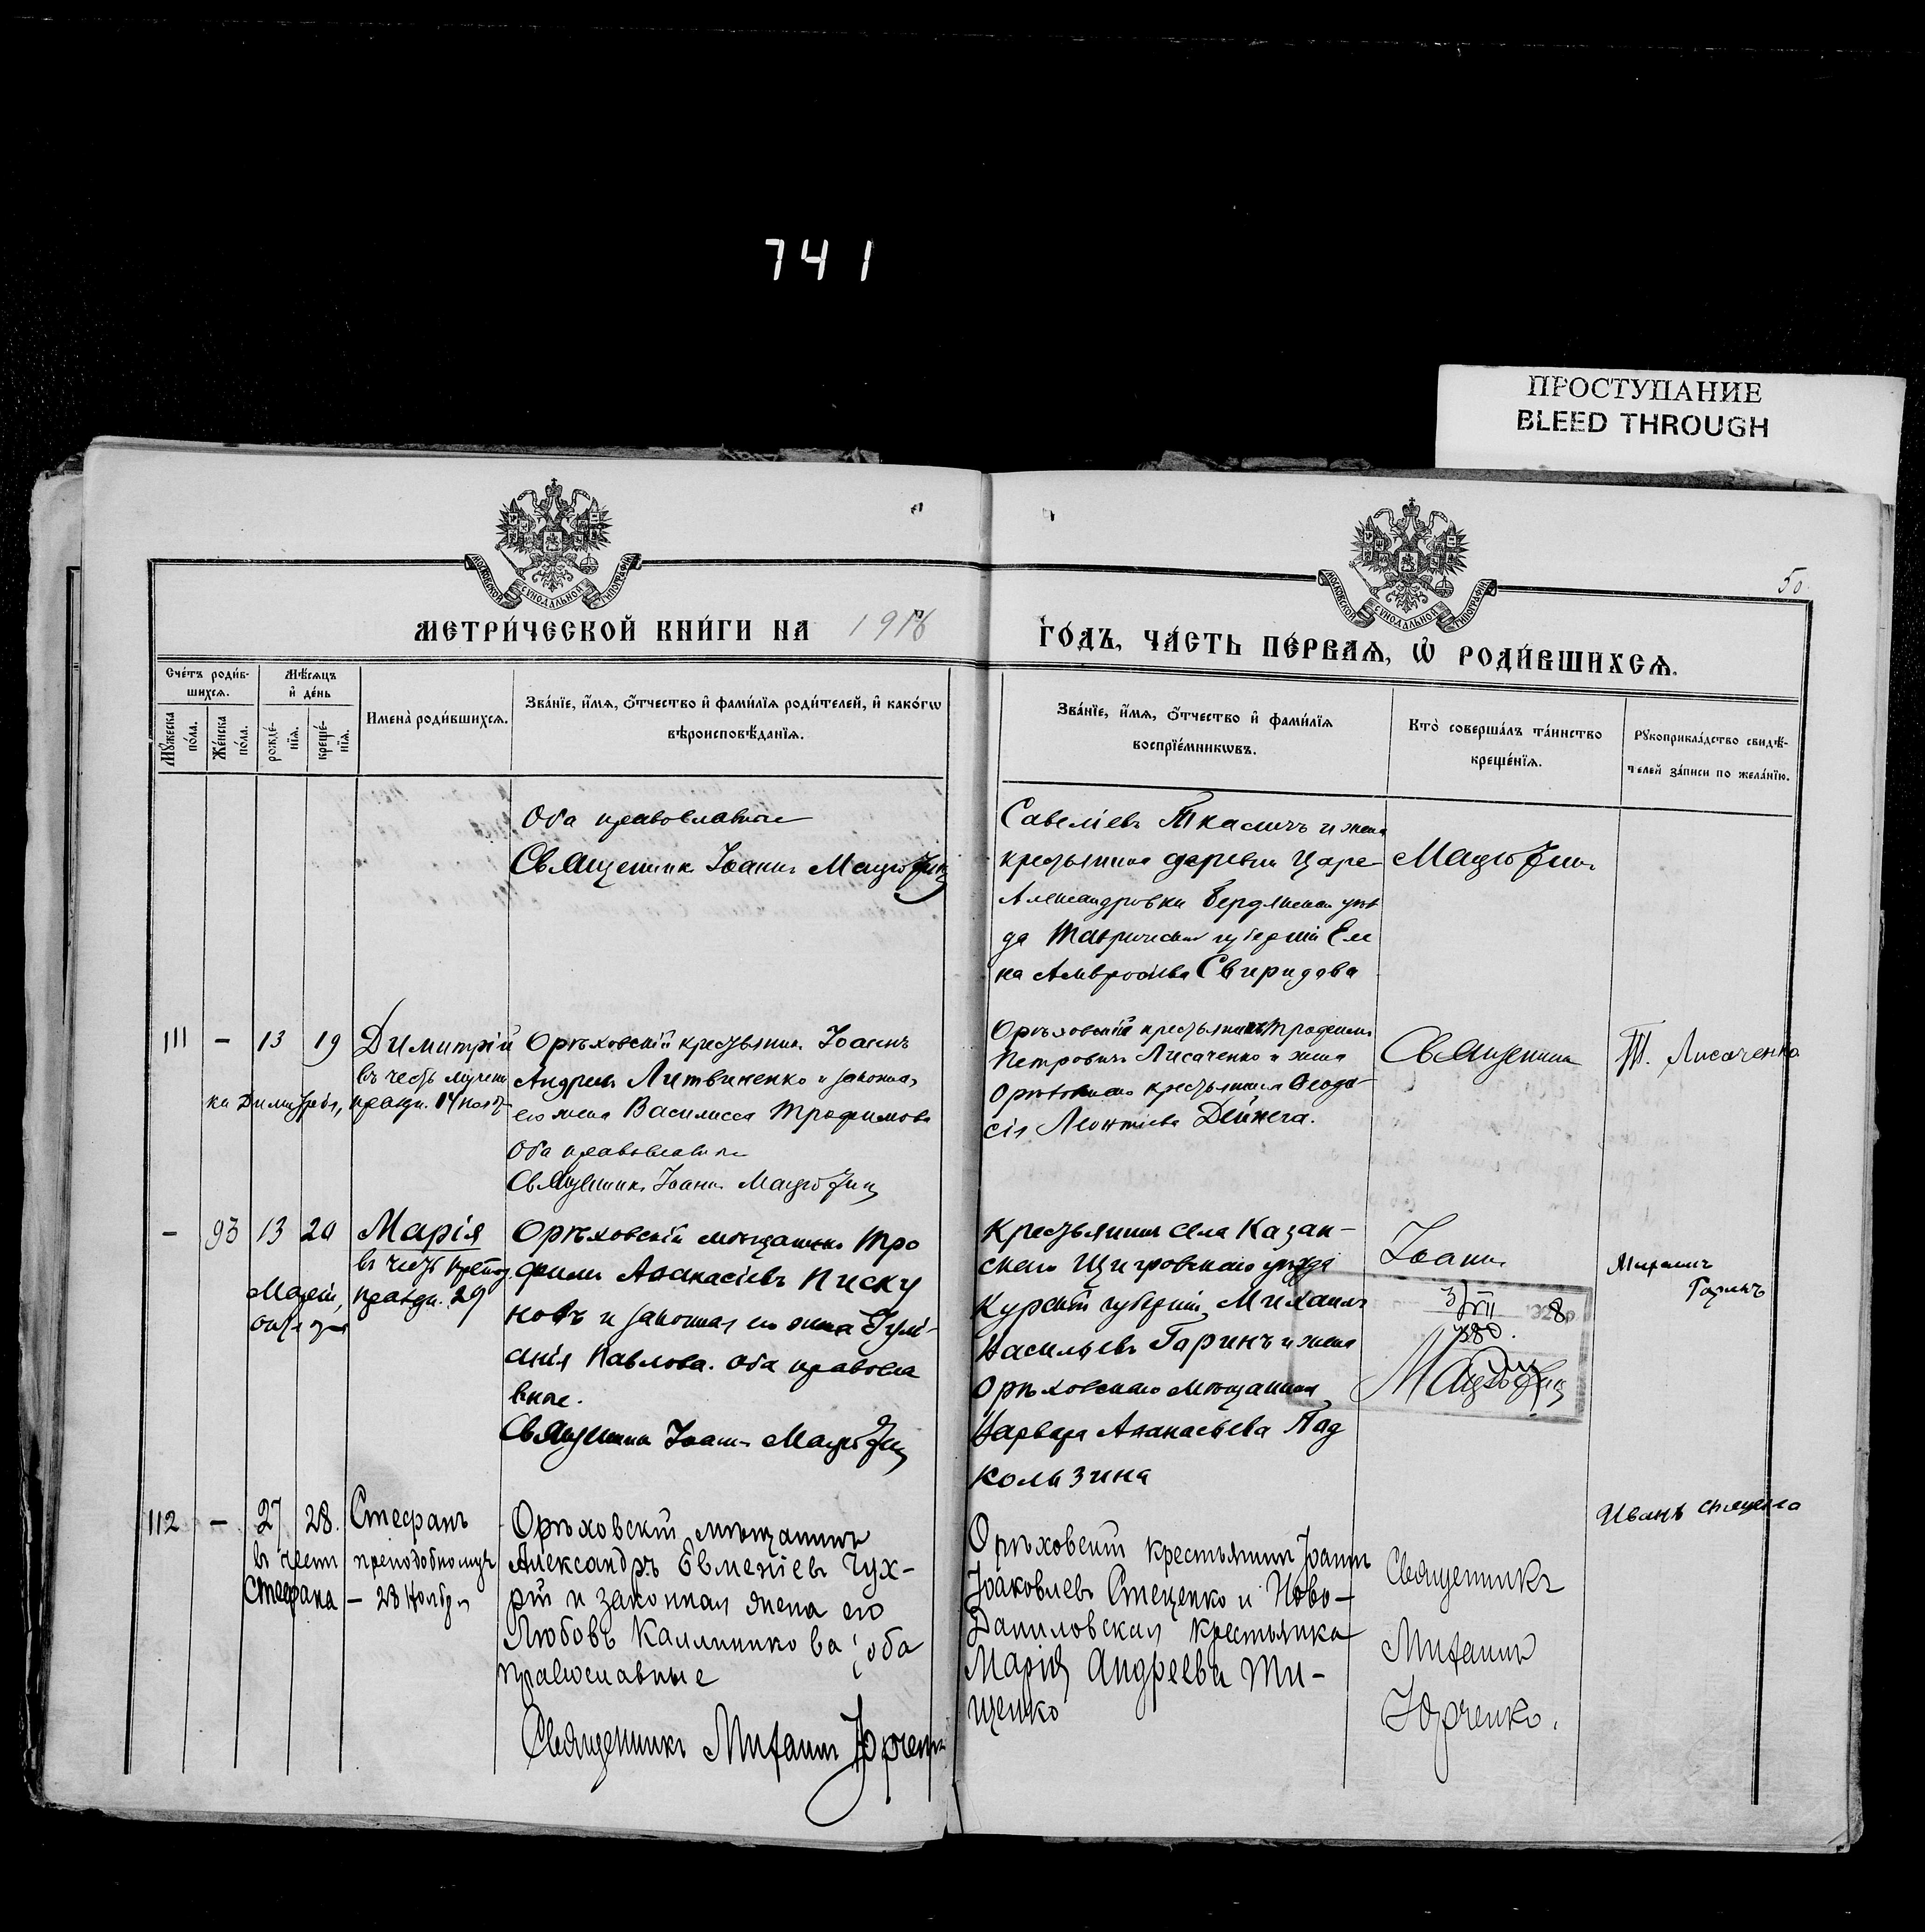 741
ПРОСТУПАНИЕ
BLEED THROUGH
МОСКОВСКОЙ СѴНОДАЛЬНОЙ ТИПОГРАФІИ
МОСКОВСКОЙ СѴНОДАЛЬНОЙ ТИПОГРАФІИ
50
МЕТРИ́ЧЕСКОЙ КНИ́ГИ НА 1916
ГО́ДЪ, ЧА́СТЬ ПЕ́РВАѦ, Ѡ РОДИ́ВШИХСѦ.
Сче́тъ роди́в-
шихсѧ.
Мꙋ́жеска
по́ла.
Же́нска
по́ла.
Мѣ́сѧцъ
и҆ де́нь
рожде́-
нїѧ.
креще́-
нїѧ.
Имена̀ роди́вшихсѧ.
Зва́нїе, и҆́мѧ, ѻ҆́тчество и҆ фами́лїѧ роди́телей, и҆ како́гѡ
вѣроисповѣ́данїѧ.
Зва́нїе, и҆́мѧ, ѻ҆́тчество и҆ фами́лїѧ
воспрїе́мникѡвъ.
Кто̀ соверша́лъ та́инство
креще́нїѧ.
Рꙋкоприкла́дство свидѣ́-
телей за́писи по жела́нїю.
Оба православные
Священникъ Іоаннъ
Савеліевъ Ткаличъ и жена
крестьянина деревни Царе-
Александровки Бердянскаго уѣз
да Таврической губерніи Еле
на Амвросіева Свиридова
111 - 13 19 Димитрій
въ честь мучени
ка Димитрія, праздн.
Орѣховскій крестьянинъ Іоаннъ
Андреевъ Литвиненко и законная
его жена Василисса Трофимова
Оба православные
Священникъ Іоаннъ
Орѣховскій крестьянинъ
Петровичъ Лисаченко и жена
Орѣховскаго крестьянина Ѳеодо-
сія Леонтіева Дейнега.
Священникъ
Т. Лисаченко
- 93 13 20 Марія
въ честь препод.
Маріи, праздн. 29
октября
Орѣховскій мѣщанинъ Тро
фимъ Аѳанасіевъ Писку
новъ и законная его жена Іулі-
анія Павлова. Оба правосла
вные.
Священникъ Іоаннъ
Крестьянинъ села Казан-
скаго Щигровскаго уѣзда
Курской губерніи Михаилъ
Васильевъ Гаринъ и жена
Орѣховскаго мѣщанина
Варвара Аѳанасьева Под
кользина
Іоаннъ
Михаилъ
Гаринъ
112 - 27 28. Стефанъ
въ честь преподобномуч
Стефана - 28 Ноября
Орѣховскій мѣщанинъ
Александръ Евменіевъ Чух-
рій и законная жена его
Любовь Каллиникова; оба
православные
Священникъ Михаилъ Юрченко
Орѣховскій крестьянинъ Іоаннъ
Іоаковлевъ Стеценко и Ново-
Даниловская крестьянка
Марія Андреева Ти-
щенко
Священникъ
Михаилъ
Юрченко.
Иванъ Стеценко